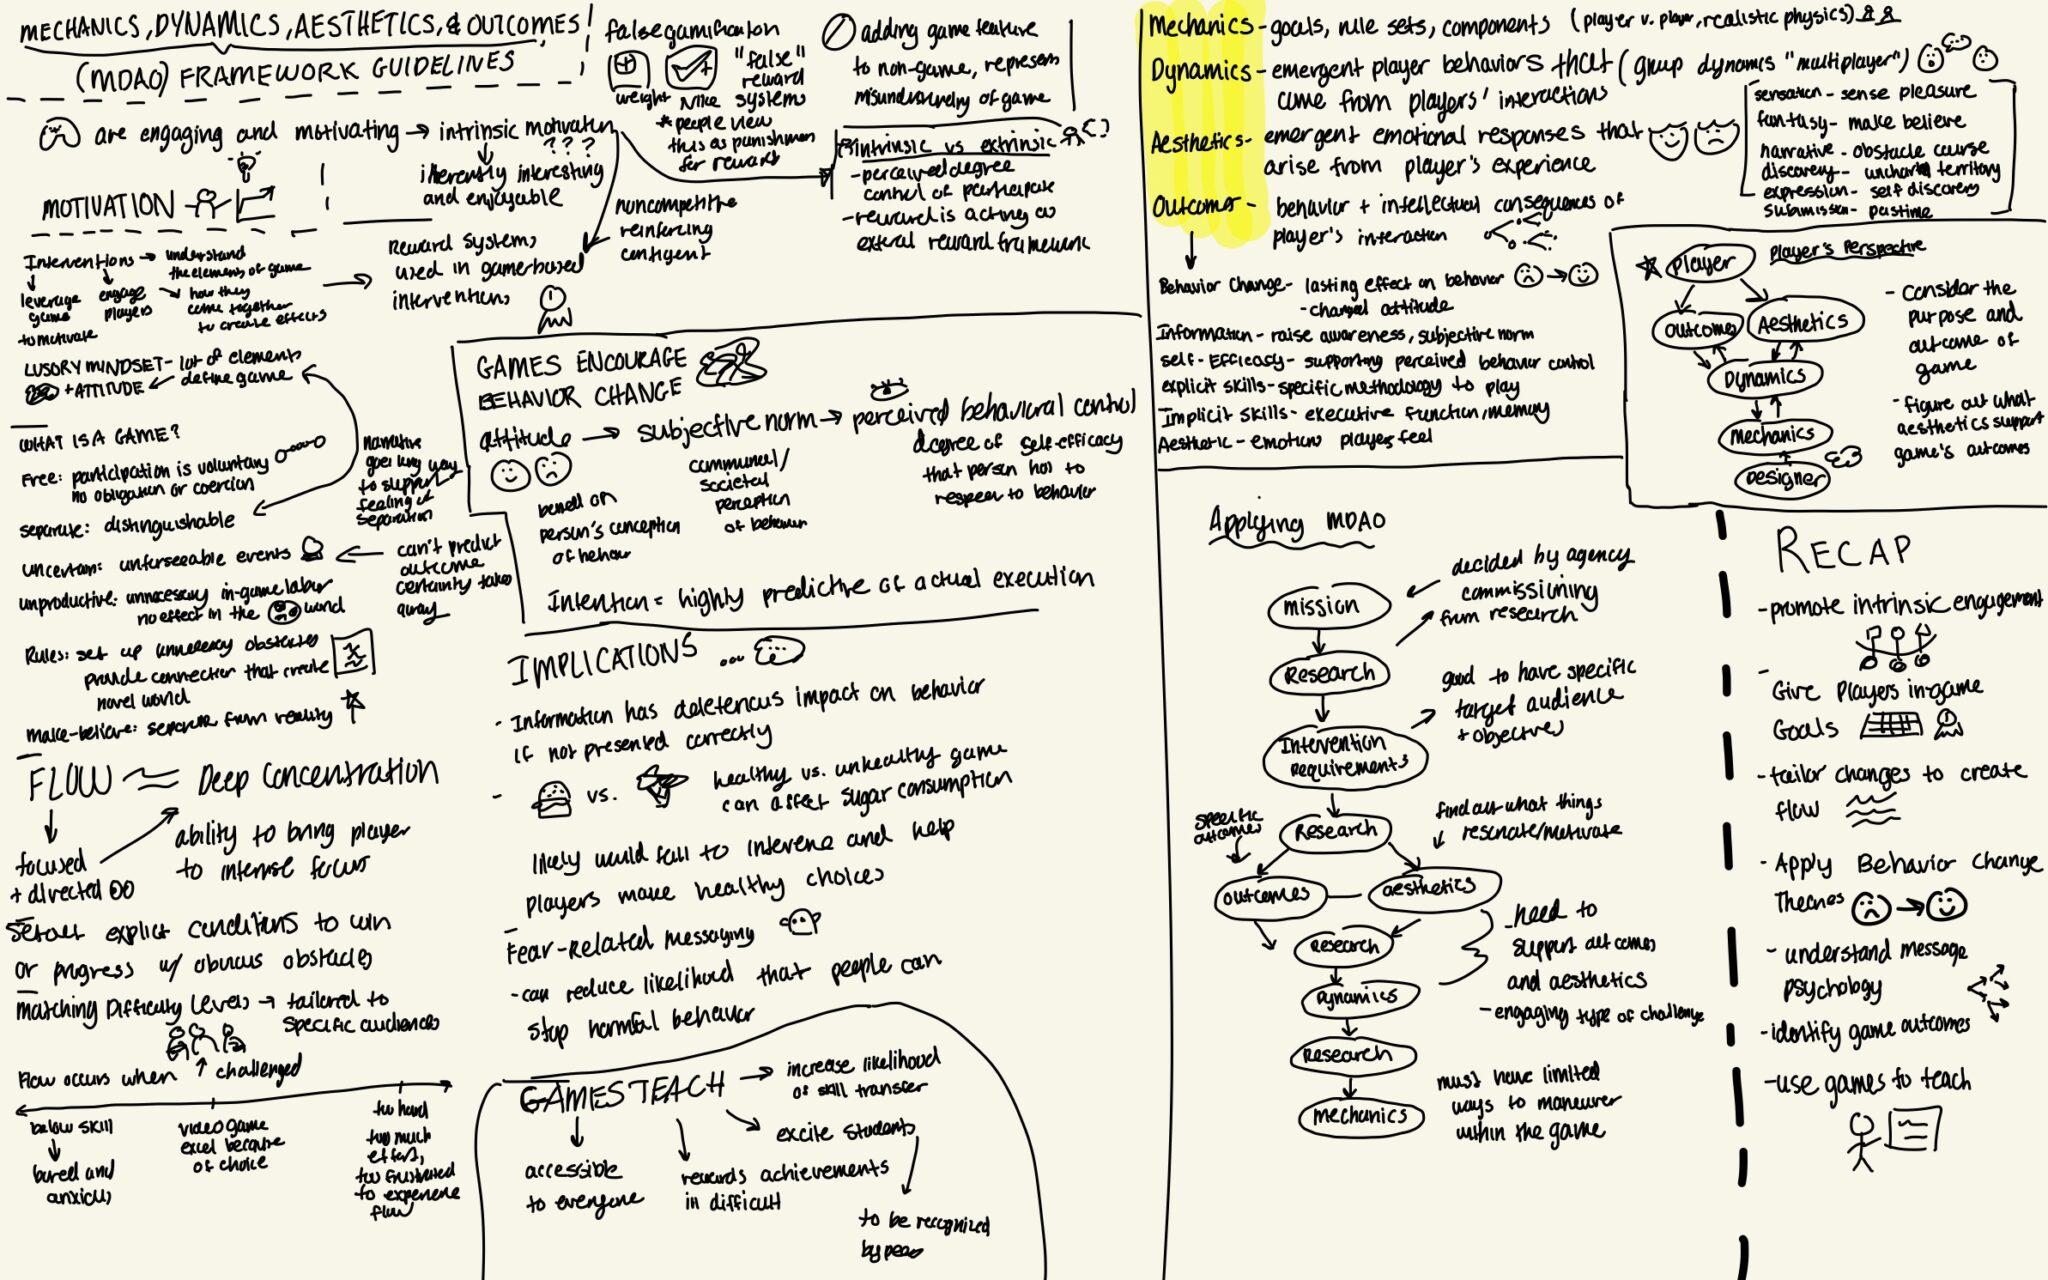 MECHANICS, DYNAMICS, AESTHETICS, & OUTCOMES
(MDAO) FRAMEWORK GUIDELINES
are engaging and motivating → intrinsic motivation
? ? ?
inherently interesting
and enjoyable
MOTIVATION
Interventions → understand
the elements of game
leverage
game
to motivate
engage
players
how they
come together
to create effects
Reward systems
used in gamebased
interventions
noncompetitive
reinforcing
contigent
false gamification
weight
Nike
"false"
reward
systems
* people view
this as punishment
for reward
adding game feature
to non-game, represents
misunderstanding of game
intrinsic vs extrinsic
- perceived degree
control of participate
- reward is acting as
external reward framework
LUSORY MINDSET - lot of elements
+ ATTITUDE ← define game
WHAT IS A GAME?
Free: participation is voluntary
no obligation or coercion
separate: distinguishable
narrative
goes long way
to support
feeling of
separation
uncertain: unforseeable events
can't predict
outcome
certainty takes
away
unproductive: unnecessary in-game labor
no effect in the world
Rules: set up unnecessary obstacles
provide connection that create
novel world
make-believe: separate from reality
FLOW Deep Concentration
focused
+ directed
ability to bring player
to intense focus
Set out explicit conditions to win
or progress w/ obvious obstacles
Matching Difficulty Levels → tailored to
specific audiences
Flow occurs when ↑ challenged
below skill
bored and
anxious
video game
excel because
of choice
too hard
too much
effort,
too frustrated
to experience
flow
GAMES ENCOURAGE
BEHAVIOR CHANGE
attitude → subjective norm → perceived behavioral control
based on
person's conception
of behavior
communal/
societal
perception
of behavior
degree of self-efficacy
that person has to
respect to behavior
Intention = highly predictive of actual execution
IMPLICATIONS ...
- Information has deleterious impact on behavior
if not presented correctly
- vs. healthy vs. unhealthy game
can affect sugar consumption
likely would fail to intervene and help
players make healthy choices
Fear-Related messaging
- can reduce likelihood that people can
stop harmful behavior
GAMES TEACH → increase likelihood
of skill transfer
excite students
accessible
to everyone
rewards achievements
in difficult
to be recognized
by peers
Mechanics - goals, rule sets, components (player v. player, realistic physics)
Dynamics - emergent player behaviors that (group dynamics "multiplayer")
come from players' interactions
Aesthetics - emergent emotional responses that
arise from player's experience
sensation - sense pleasure
fantasy - make believe
narrative - obstacle course
discovery - uncharted territory
expression - self discovery
submission - pastime
Outcomes - behavior + intellectual consequences of
player's interaction
Behavior Change - lasting effect on behavior
- changed attitude
Information - raise awareness, subjective norm
self-Efficacy - supporting perceived behavior control
explicit skills - specific methodology to play
Implicit skills - executive function, memory
Aesthetic - emotions players feel
Player
Player's Perspective
outcomes
Aesthetics
Dynamics
Mechanics
Designer
- consider the
purpose and
outcome of
game
- figure out what
aesthetics support
game's outcomes
Applying MDAO
mission
decided by agency
commissioning
from research
Research
good to have specific
target audience
+ objectives
Intervention
Requirements
Research
find out what things
resonate/motivate
specific
outcomes
outcomes
aesthetics
Research
Dynamics
- need to
support outcomes
and aesthetics
- engaging type of challenge
Research
mechanics
must have limited
ways to maneuver
within the game
RECAP
- promote intrinsic engagement
- Give Players in-game
Goals
- tailor changes to create
flow
- Apply Behavior Change
Theories
- understand message
psychology
- identify game outcomes
- use games to teach